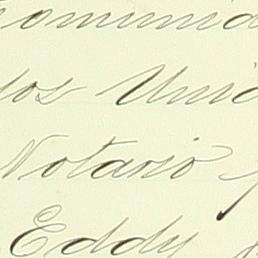 omunid
los Unid
Notario
Eddy